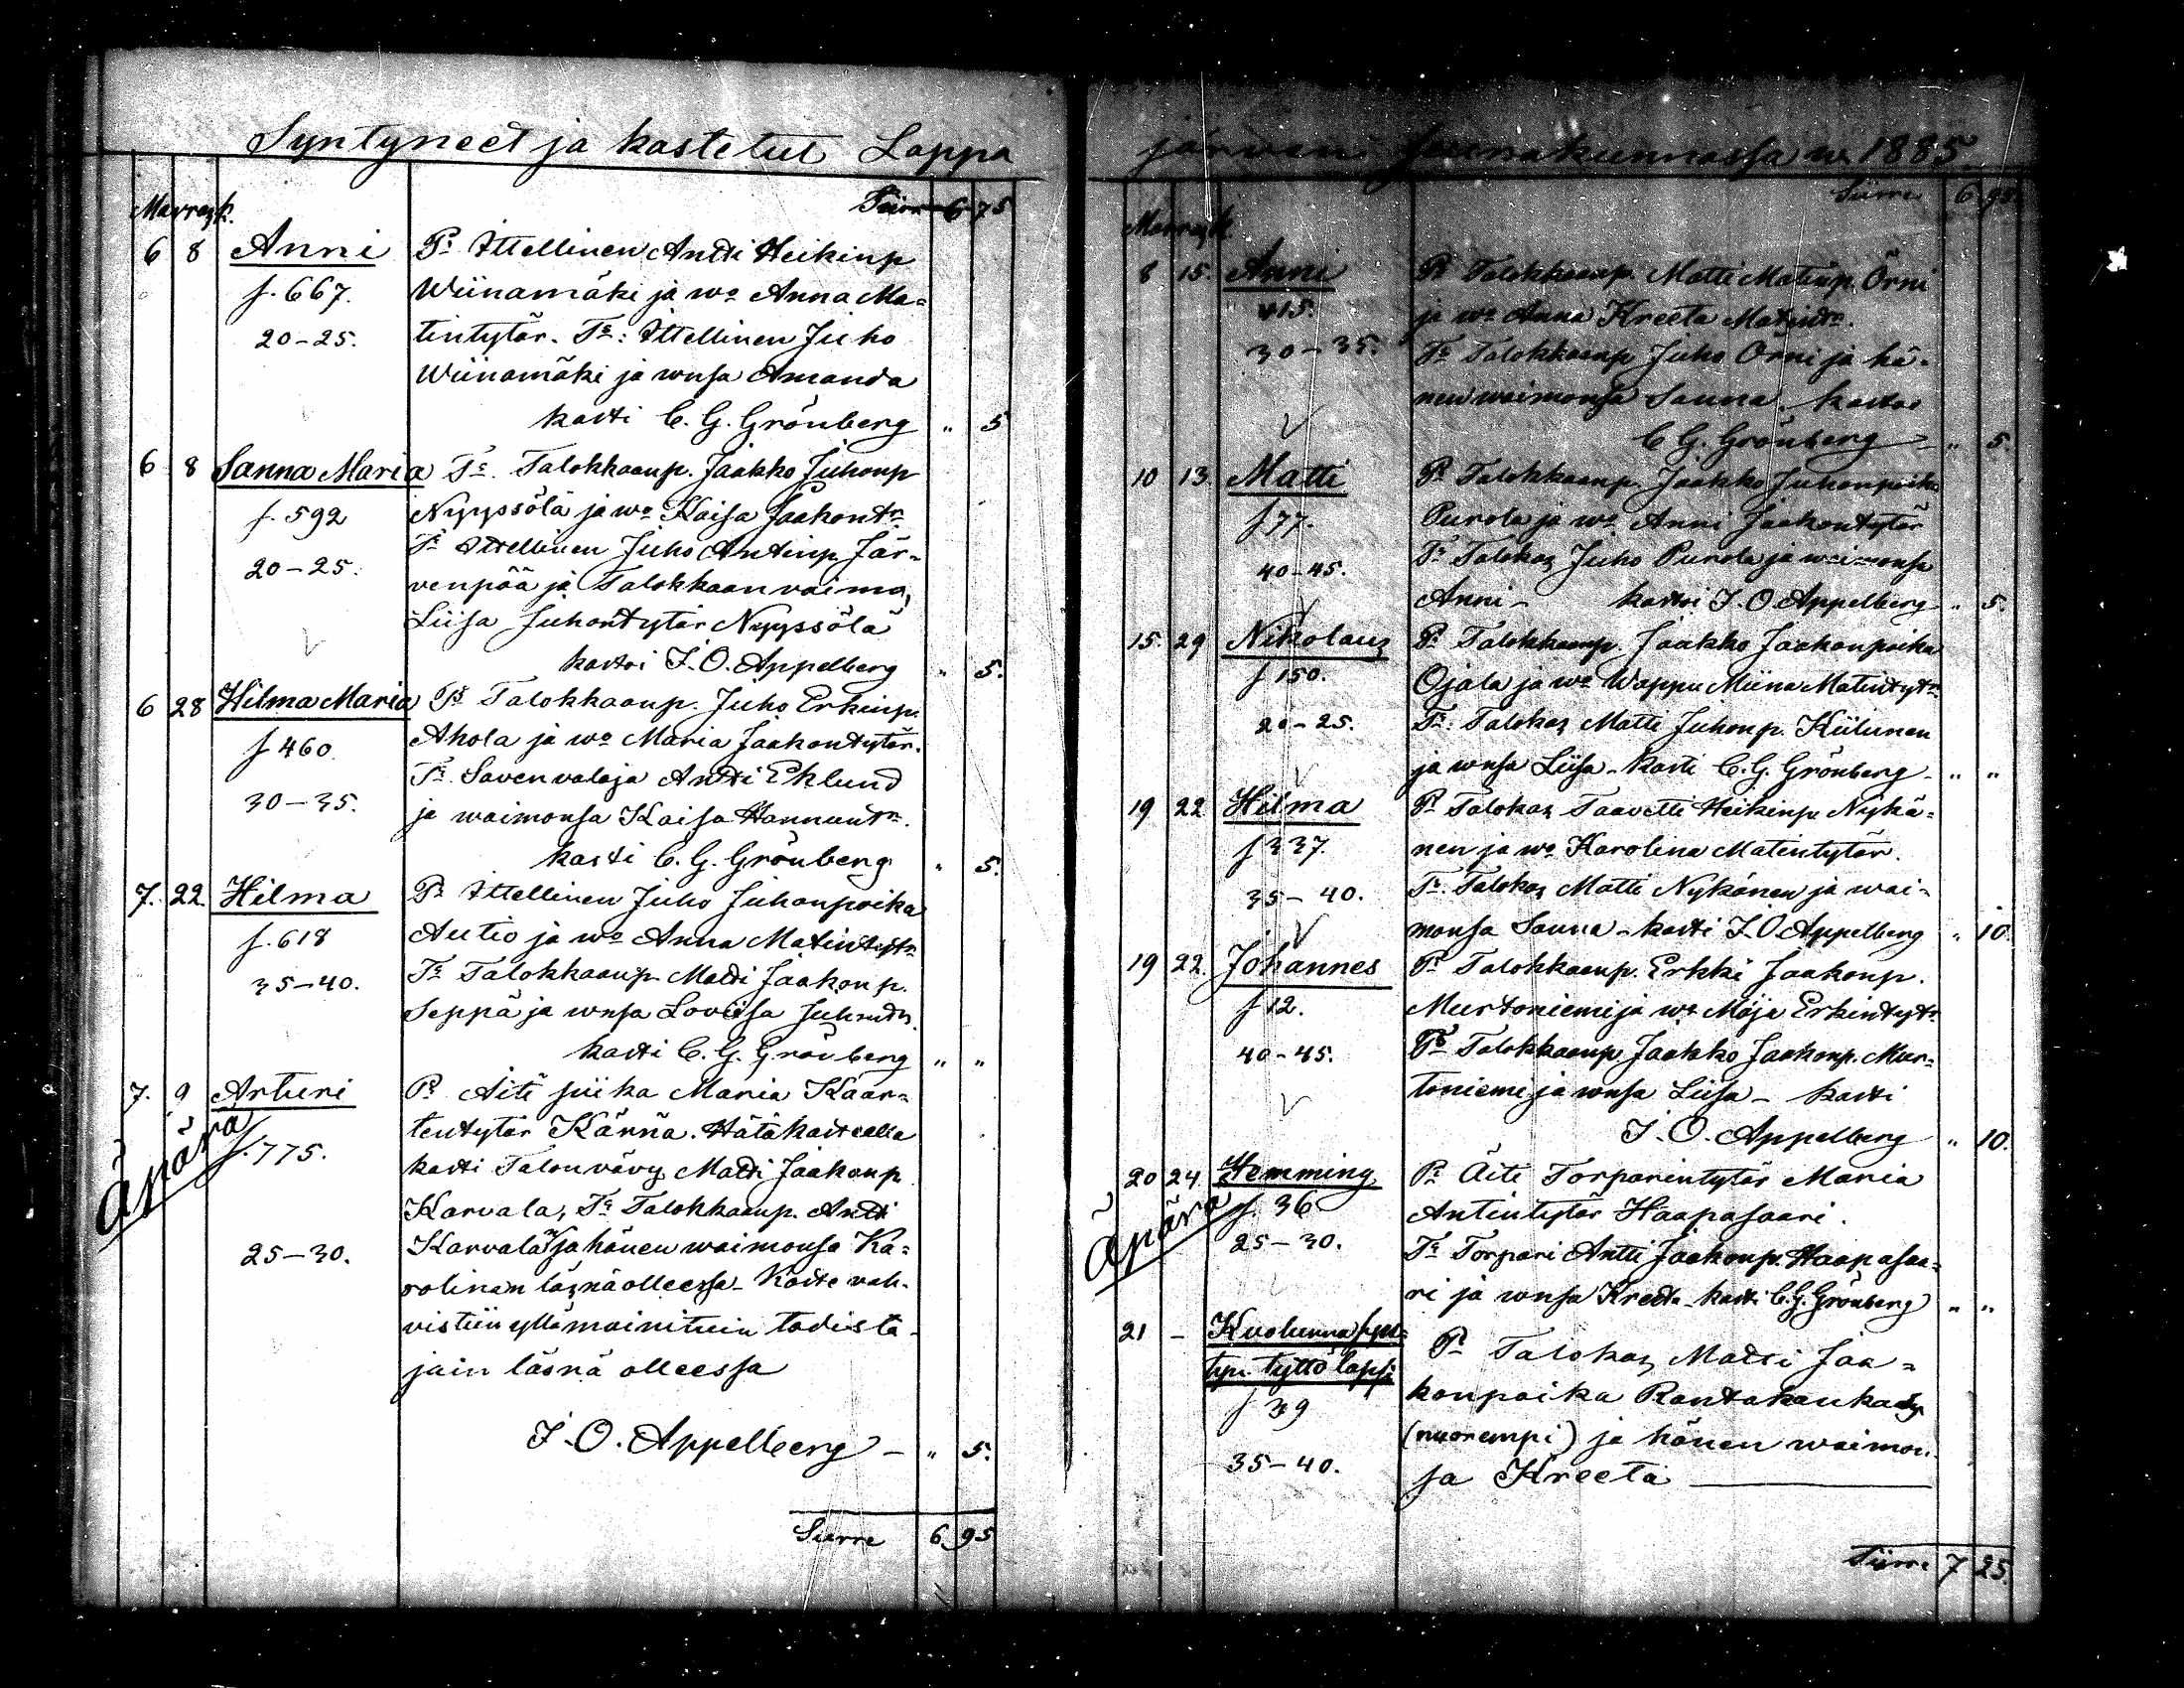 Syntyneet ja kastetut Lappa
Siirre 6 75
Marrask.
6 8 Anni Pr Ittellinen Antti Heikinp
f. 667. Wiinamäki ja wo Anna Ma=
20-25. tintytär. Tr: Ittellinen Juho
Wiinamäki ja wnsa Amanda
kasti C. G. Grönberg " 5
6 8 Sanna Maria Pr. Talokkaanp. Jaakko Juhonp
f. 592 Nyyssölä ja wo Kaisa Jaakontr.
Tr Ittellinen Juho Antinp. Jär=
20-25. venpää ja Talokkaan vaimo,
Liisa Juhontytär Nyyssölä
kastoi J. O. Appelberg " 5.
6 28 Hilma Maria Pr Talokkaanp. Juho Erkinp.
f 460. Ahola ja wo Maria Jaakontytär.
Tr. Savenvalaja Antti Eklund
30-35. ja waimonsa Kaisa Hannuntr.
kasti C. G. Grönberg " 5.
7. 22. Hilma Pr Ittellinen Juho Juhonpoika
f. 618 Autio ja wo Anna Matintytr
35-40. Tr Talokkaanp. Matti Jaakonp.
Seppä ja wnsa Loviisa Juhndr.
kasti C. G. Grönberg " "
7. 9 Arturi Pr Äiti piika Maria Kaar=
Äpärä f. 775. lentytär Kännä. Hätäkasteella
kasti Talonvävy Matti Jaakonp
Karvala, Tr Talokkaanp. Antti
25-30. Karvalan ja hänen waimonsa Ka=
rolinan läsnäolleessa. Kaste vah-
vistiin yllämainituin todista-
jain läsnä olleessa
J. O. Appelberg - " 5.
Siirre 6. 95
järven seurakunnassa w. 1885.
Siirre 6 95.
Marrask.
8 15. Anni Pr Talokkaanp. Matti Matinp. Örni
415. ja wo Anna Kreeta Matindr.
30-35. Tr Talokkaanp Juho Örni ja hä-
nen waimonsa Sanna. kastoi
C G. Grönberg - " 5.
10 13 Matti Pr Talokkaanp. Jaakko Juhonpoika
f 77. Purola ja wo Anni Jaakontytär
40-45. Tr Talokas Juho Purola ja waimonsa
Anni - kastoi J. O Appelberg - " 5.
15. 29 Nikolaus Pr Talokkaanp. Jaakko Jaakonpoika
f 150. Ojala ja wo Wappu Miina Matintytr
20-25. Tr: Talokas Matti Juhonp. Kiilunen
ja wnsa Liisa - kasti C. G. Grönberg - " "
19 22 Hilma Pr Talokas Taavetti Heikinp. Nykä=
f 337. nen ja wo Karolina Matintytär.
35-40. Tr. Talokas Matti Nykänen ja wai-
monsa Sanna - kasti J. O Appelberg " 10.
19 22. Johannes Pr Talokkaanp. Erkki Jaakonp.
f 12. Murtoniemi ja wo Maja Erkintytr
40-45. Tr Talokkaanp Jaakko Jaakonp. Mur=
toniemi ja wnsa Liisa - kasti
J. O. Appelberg " 10.
20 24. Hemming Pr Äiti Torparintytär Maria
Äpärä f. 36 Antintytär Haapasaari.
25-30. Tr Torpari Antti Jaakonp. Haapasaa=
ri ja wnsa Kreeta - kasti C. G. Grönberg " "
21 - Kuolunna syn=
tyn. tyttö lapsi Pr Talokas Matti Jaa=
f 39 konpoika Rantakankas
(nuorempi) ja hänen waimon
35-40. sa Kreeta
Siirre 7 25.